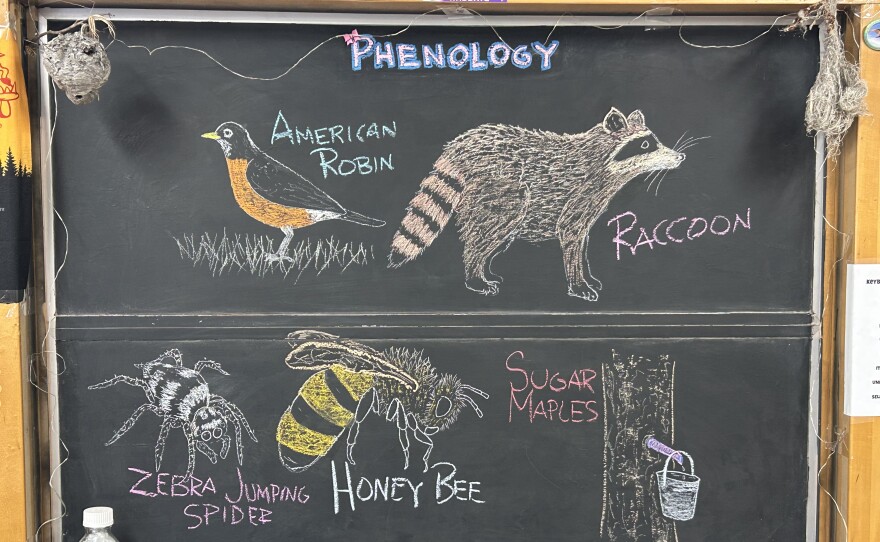 PHENOLOGY
AMERICAN
ROBIN
RACCOON
ZEBRA JUMPING
SPIDER
HONEY BEE
SUGAR
MAPLES